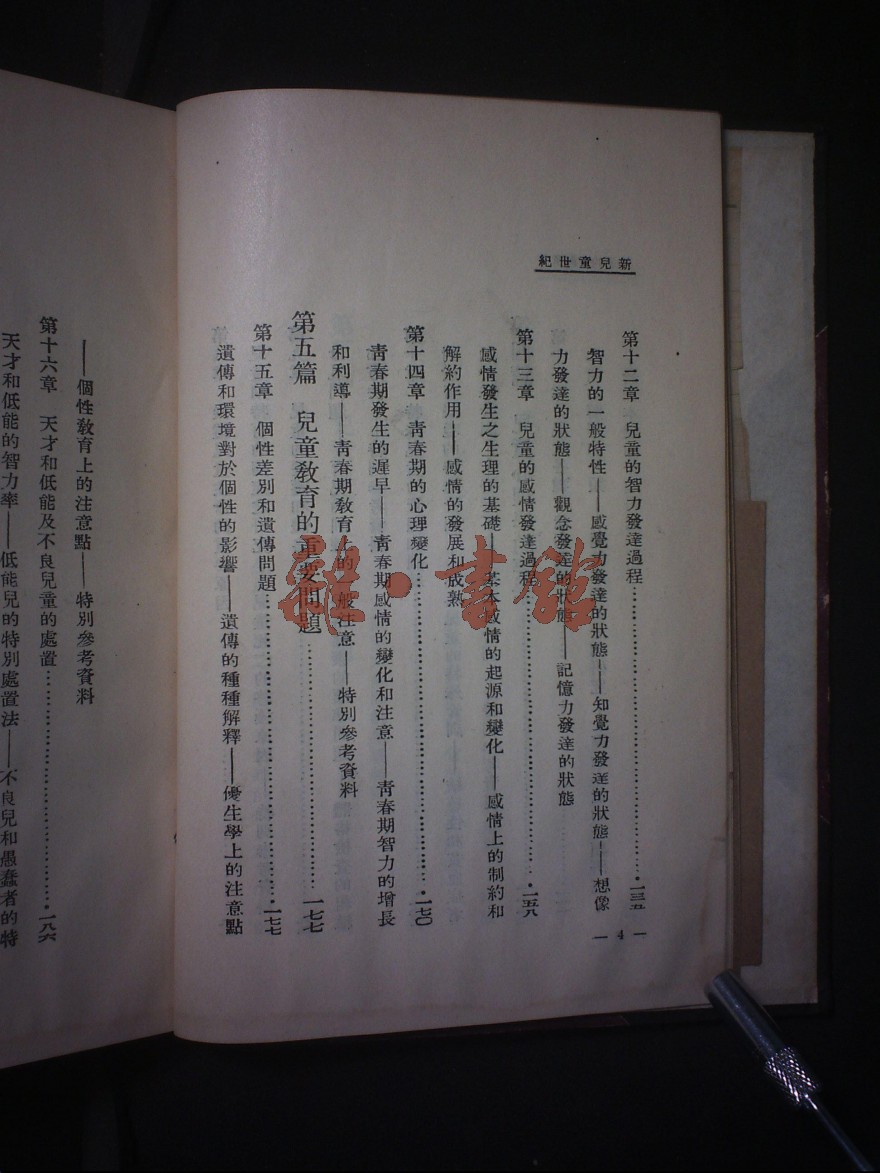 新兒童世紀
第十二章　兒童的智力發達過程……一三五
智力的一般特性——感覺力發達的狀態——知覺力發達的狀態——想像
力發達的狀態——觀念發達的狀態——記憶力發達的狀態
第十三章　兒童的感情發達過程……一五八
感情發生之生理的基礎——基本感情的起源和變化——感情上的制約和
解約作用——感情的發展和成熟
第十四章　青春期的心理變化……一七〇
青春期發生的遲早——青春期感情的變化和注意——青春期智力的增長
和利導——青春期教育上的一般注意——特別參考資料
第五篇　兒童教育的重要問題……一七七
第十五章　個性差別和遺傳問題……一七七
遺傳和環境對於個性的影響——遺傳的種種解釋——優生學上的注意點
— 4 —
——個性教育上的注意點——特別參考資料
第十六章　天才和低能及不良兒童的處置……一八六
天才和低能的智力率——低能兒的特別處置法——不良兒和愚蠢者的特
雜·書館